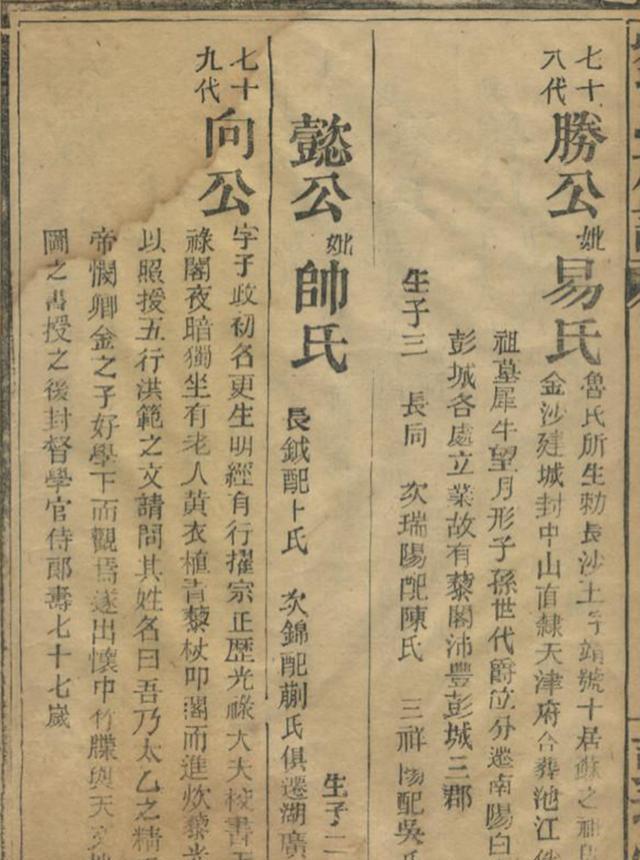 七十
八代
勝公
妣
易氏
魯氏所生勅長沙王字靖號十居蘇之祖
金沙建城封中山直隷天津府合葬池江
祖墓犀牛望月形子孫世代爵位分遷南陽白
彭城各處立業故有藜閣沛豐彭城三郡
生子三 長同 次瑞陽配陳氏 三祥陽配吳氏
懿公
妣
帥氏
長鉞配卜氏 次錦配蒯氏俱遷湖廣
生子二
七十
九代
向公
字子政初名更生明經有行擢宗正歴光祿大夫校書
祿閣夜暗獨坐有老人黃衣植青藜杖叩閣而進炊藜
以照援五行洪範之文請問其姓名曰吾乃太乙之精
帝憫卿金之子好學下而觀焉遂出懷中竹牒與天
圖之書授之後封督學官侍郎壽七十七歲